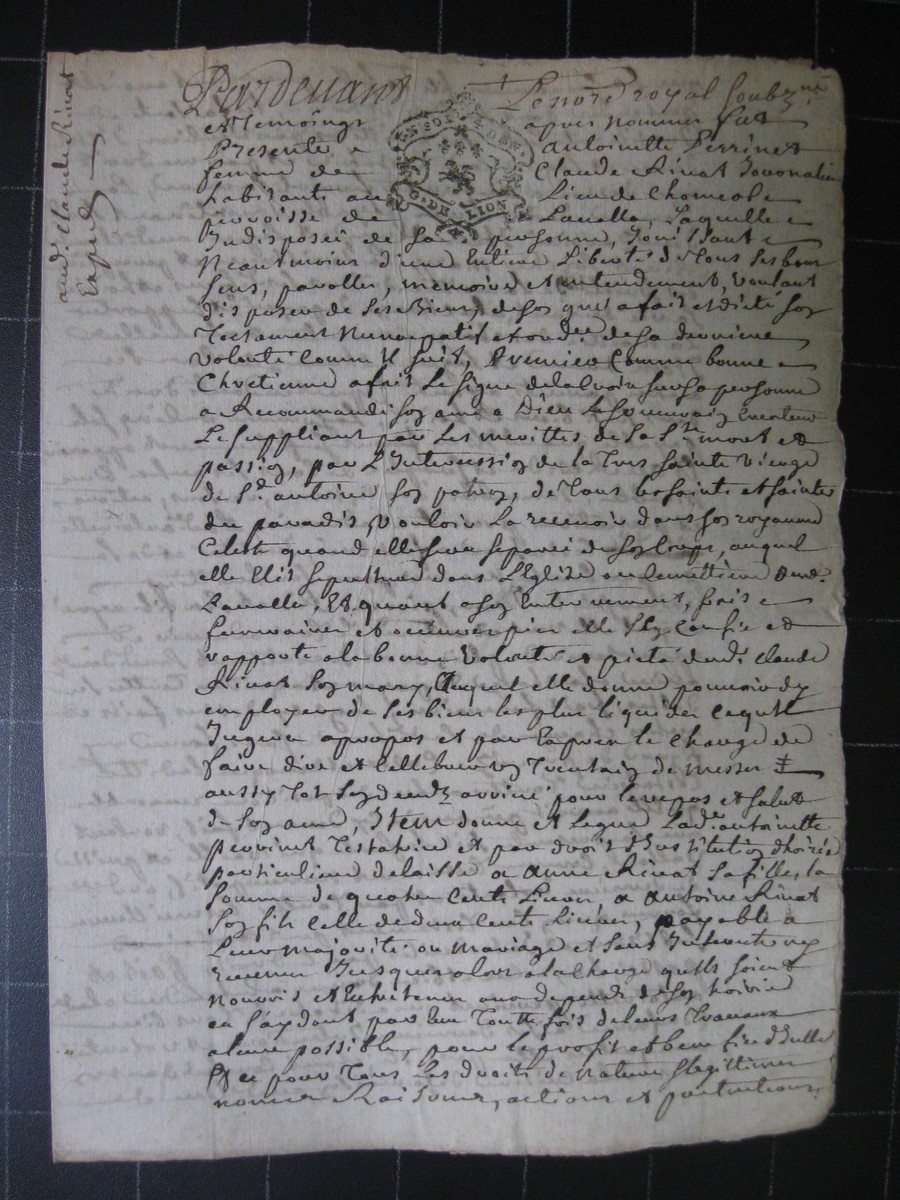 aud. Claude Rivat
Expedié
Pardevant Le no.re royal soubz.né
et temoings apres nommes fut
Presente Antoinette Perrinet
femme de Claude Rivat
habitants au Lieu de Chomeol
parroisse de Lavalla, Laquelle
Indisposeé de sa personne, Jouissant
Neantmoins d'une Entiere Liberté de tous ses bons
sens, parolles, memoire et entendement, voulant
disposer de ses Biens, de son gré a fait et dicté son
Testament Nuncupatif et ord.re de sa derniere
volonté comme Il suit, Premiere comme bonne
Chretienne a fait Le signe de la Croix sur sa personne
a Recommandé son ame a Dieu Le souverain Createur
Le suppliant par Les merittes de sa S.te mort et
passion, par L'Intercession de la tres sainte vierge
de S.t antoine son patron, de tous les saints et saintes
du paradis, vouloir La recevoir dans son royaume
Celeste quand elle sera separeé de son Corps, auquel
elle Elit sepulture dans L'Eglise ou Cemettiere dud.
Lavalla, Et quant a son Enterrement, frais
funeraires et oeuvres pies elle s'en confie et
rapporte a la bonne volonté et pieté dud. Claude
Rivat son mary, Auquel elle donne pouvoir d'y
employer de ses biens les plus liquides ce qu'Il
Jugera apropos et par Exprés le charge de
faire dire et Cellebrer un trentain de messes
aussy tot son deceds arrivé pour le repos et salut
de son ame, Item donne et Legue Lad.e antoinette
perrinet Testatrice et par droit d'Institution d'hoirie
particuliere delaisse a anne Rivat sa fille, la
somme de quatre cents Livres, a Antoine Rivat
son fils Celle de deux Cents Livres, payable a
Leur majorité ou mariage et sans Interests ny
Jusques alors a la charge qu'Ils soient
nourris et Entretenus aux depends de son hoirie
en s'aydant par eux Touttefois de leurs travaux
a leur possible, pour le profit et benefice d'Icelle
Et ce pour tous Les droits de nature Legittimes
noms Raisons, actions et pretentions,